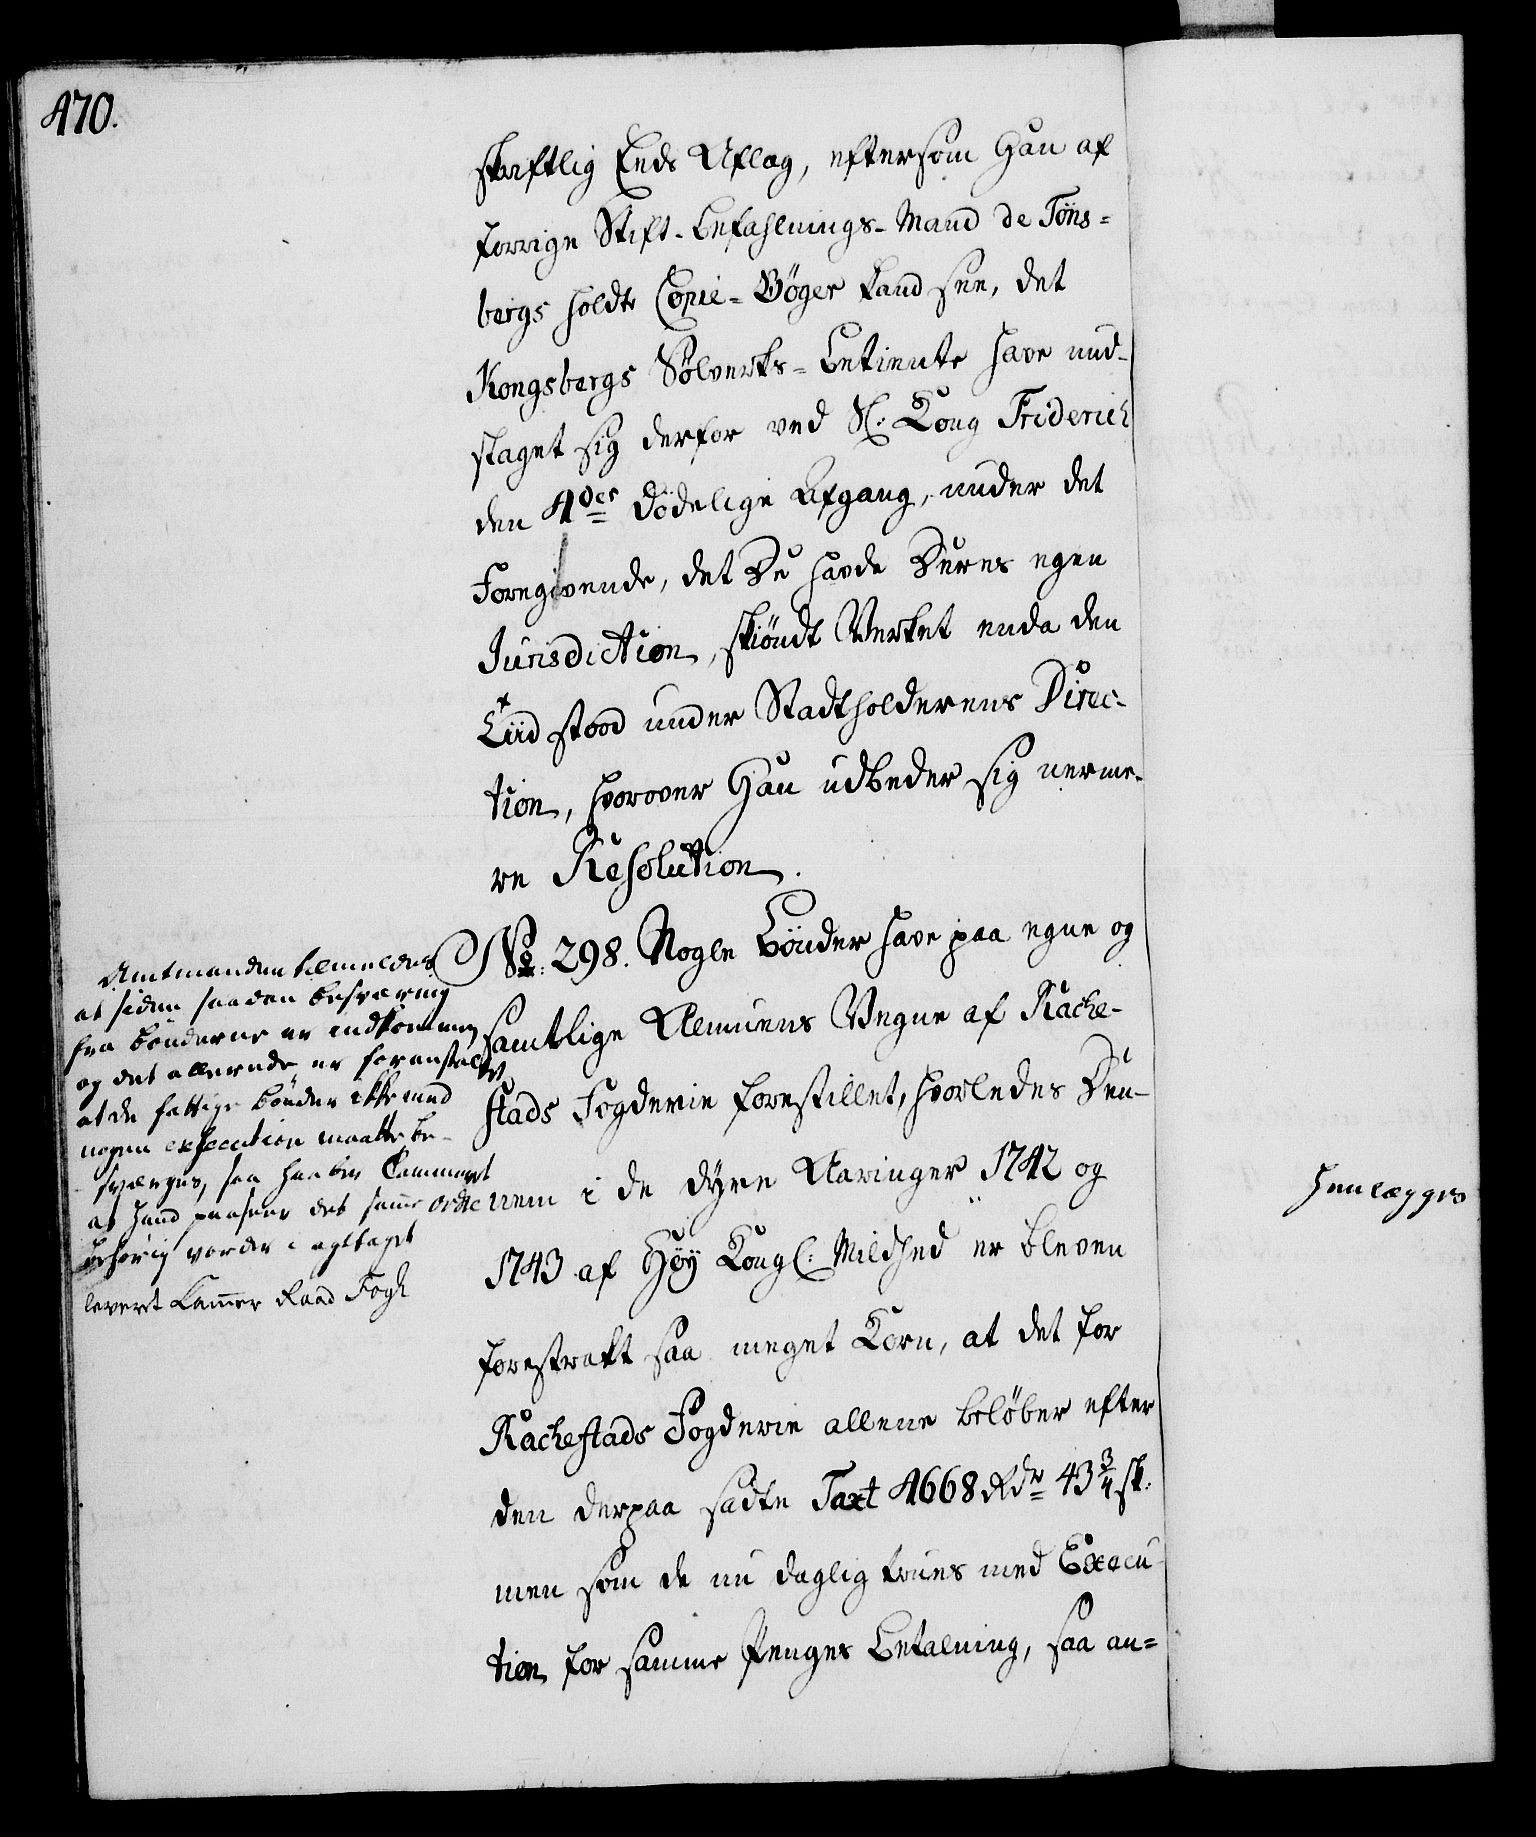 470.
skriftlig Eeds Aflæg, eftersom Han af
forrige Stift-Befahlnings-Mand de Töns=
bergs holdte Copie=Böger kand see, det
Kongsbergs Sölverks=Betiente have und-
slaget sig derfor ved Sl: Kong Friderich
den 4des Dödelige Afgang, under det
Foregivende, det De havde Deres egen
Jurisdiction, skiöndt Verket enda den
Tiid stood under Stadtholderens Direc-
tion, hvorover Han udbeder sig nerme-
re Resolution.
No: 298. Nogle Bönder have paa egne og
samtlige Almuens Vegne af Rache-
stads Fogderie forestillet, hvorledes Den-
nem i de dyre Aaringer 1742 og
1743 af Höy Kongl: Mildhed er bleven
forestrakt saa meget Korn, at det for
Rachestads Fogderie allene belöber efter
den derpaa sadte Taxt 4668 Rdr 43 3/4 sk:
men som de nu daglig trues med Execu-
tion for samme Penges Betalning, saa an=
Amtmanden tilmeldes
at siden saadan besværing
fra bönderne er indkommen
og det allerede er foranstaltet
at de fattige bönder ikke med
nogen execution maatte be-
sværges, saa haaber Cammeret
at hand paaseer det samme ordre
behörig vorder i agttaget
levert Kammer Raad Fogh
Henlægges